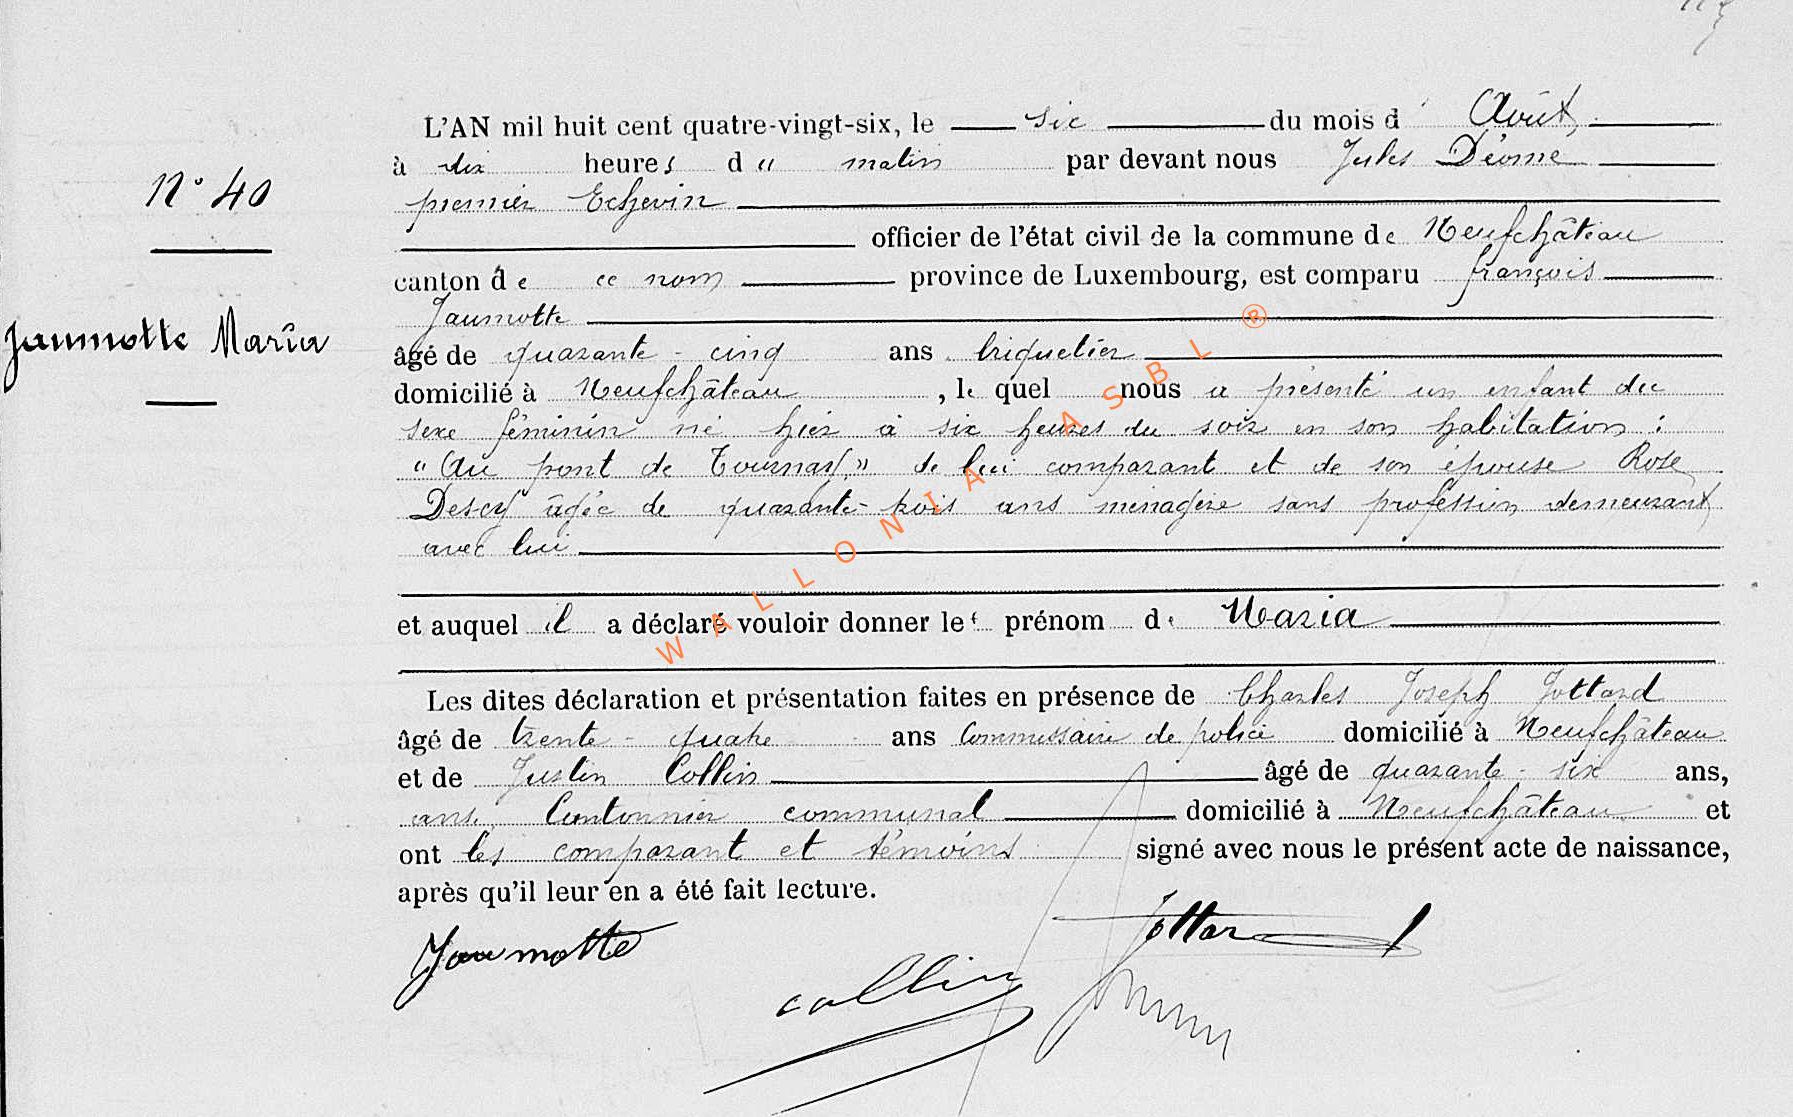 L'AN mil huit cent quatre-vingt-six, le six du mois d' Août,
à dix heures du matin par devant nous Jules Déome
premier Echevin
officier de l'état civil de la commune de Neufchâteau
canton de ce nom province de Luxembourg, est comparu françois
Jaumotte
âgé de quarante-cinq ans briquetier
domicilié à Neufchâteau , lequel nous a présenté un enfant du
sexe féminin né hier à six heures du soir en son habitation :
"Au pont de Tournay," de lui comparant et de son épouse Rose
Descy âgée de quarante-trois ans ménagère sans profession demeurant
avec lui
et auquel il a déclaré vouloir donner le prénom de Maria
Les dites déclaration et présentation faites en présence de Charles Joseph Jottard
âgé de trente-quatre ans Commissaire de police domicilié à Neufchâteau
et de Justin Collin âgé de quarante-six ans,
ans, Cantonnier communal domicilié à Neufchâteau et
ont les comparant et témoins signé avec nous le présent acte de naissance,
après qu'il leur en a été fait lecture.
N° 40
Jaumotte Maria
Jaumotte
Jottard
collin
WALLONIA ASBL ®